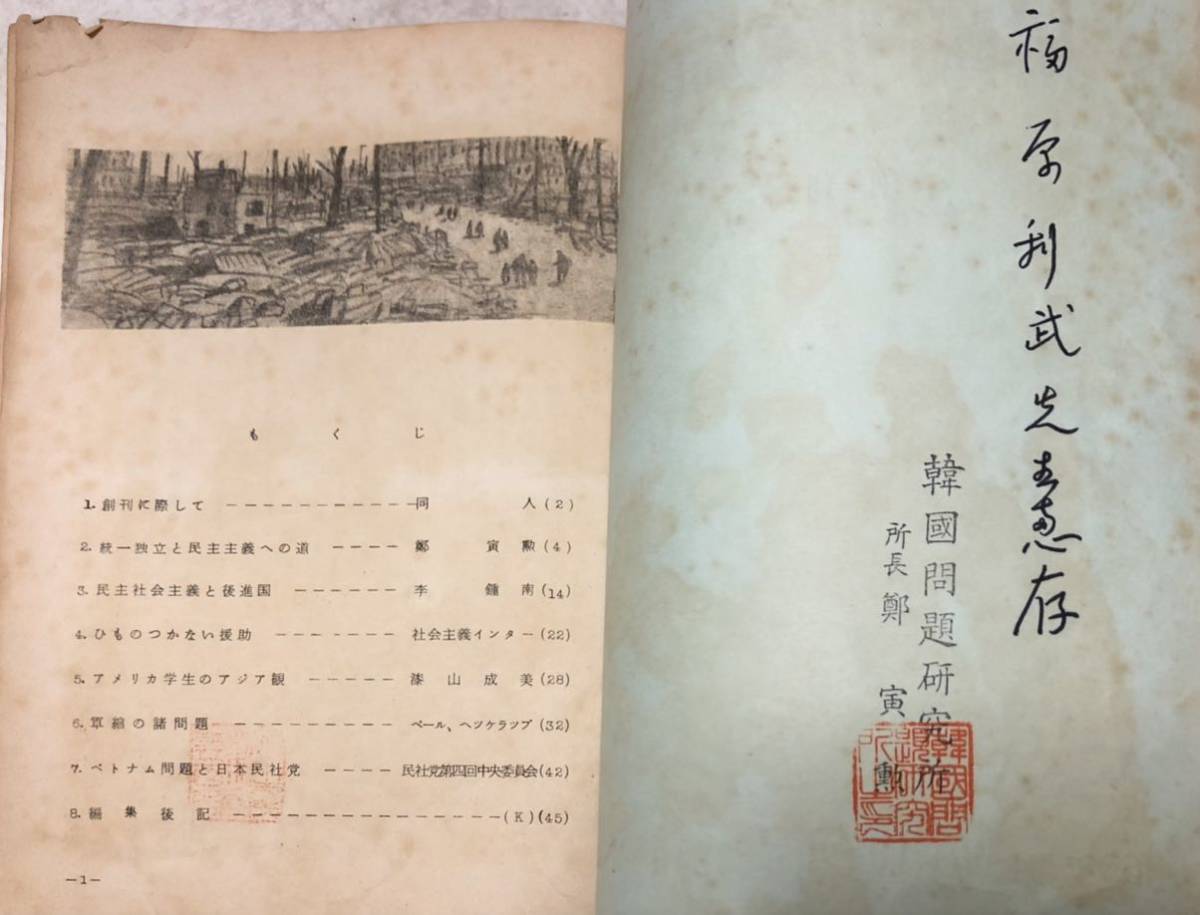 もくじ
1. 創刊に際して ------------ 同人 (2)
2. 統一独立と民主主義への道 ---- 鄭寅勲 (4)
3. 民主社会主義と後進国 ------ 李鍾南 (14)
4. ひものつかない援助 ------- 社会主義インター (22)
5. アメリカ学生のアジア観 ----- 漆山成美 (28)
6. 軍縮の諸問題 --------- ペール、ヘツケラツプ (32)
7. ベトナム問題と日本民社党 ---- 民社党第四回中央委員会 (42)
8. 編集後記 --------------- (K) (45)
—1—
福原利武先生恵存
韓國問題研究所
所長鄭寅勲
韓國問題研究所所長